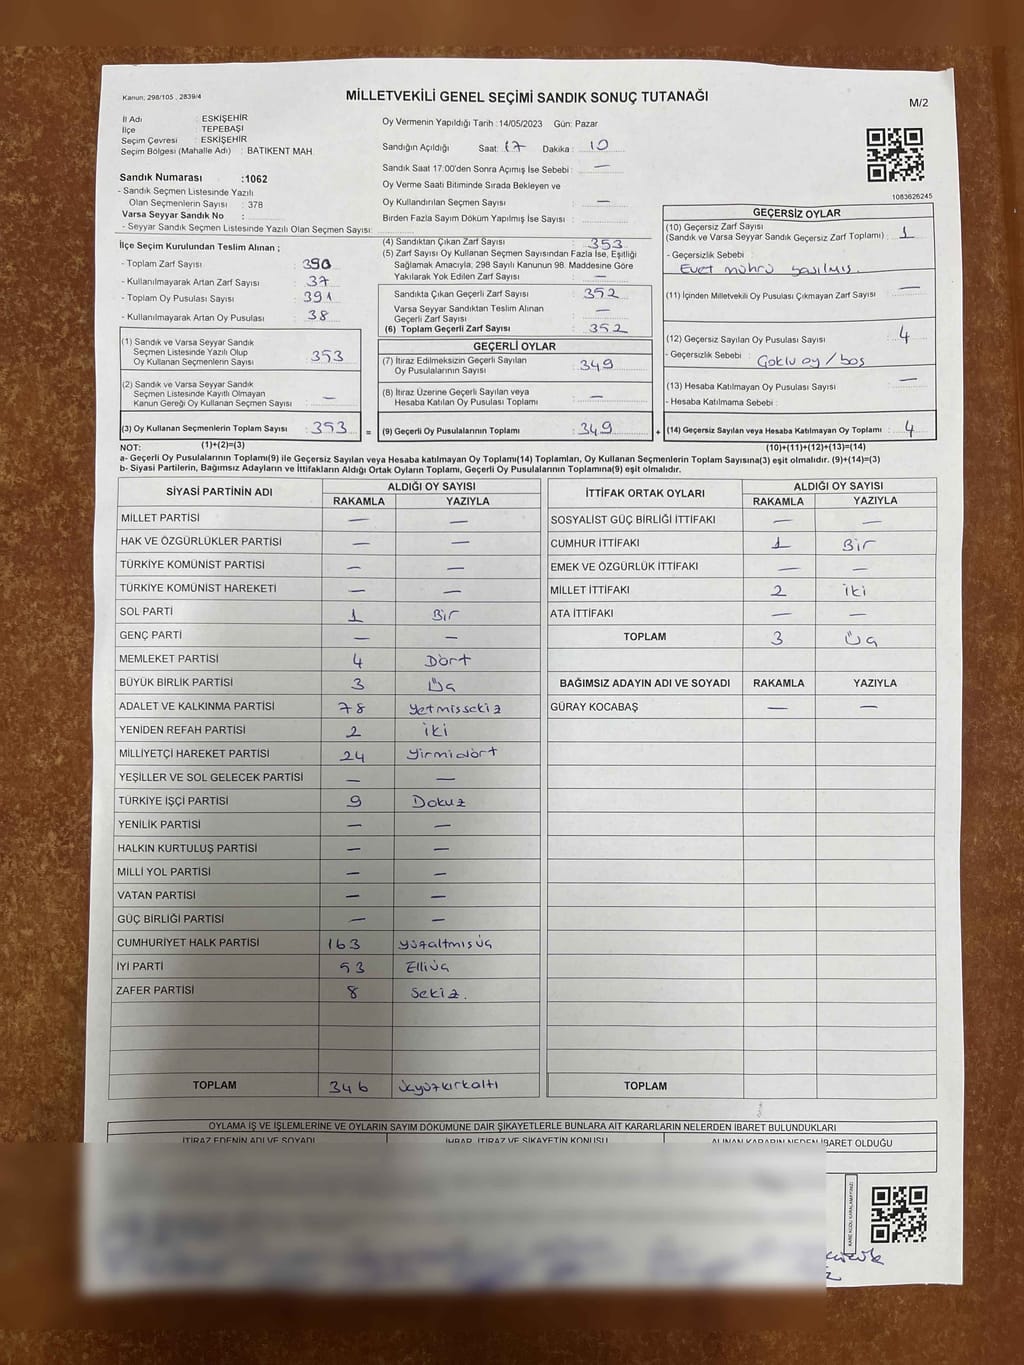 Kanun; 298/105 , 2839/4
MİLLETVEKİLİ GENEL SEÇİMİ SANDIK SONUÇ TUTANAĞI
M/2
İl Adı : ESKİŞEHİR
İlçe : TEPEBAŞI
Seçim Çevresi : ESKİŞEHİR
Seçim Bölgesi (Mahalle Adı) : BATIKENT MAH.
Sandık Numarası :1062
- Sandık Seçmen Listesinde Yazılı
Olan Seçmenlerin Sayısı : 378
Varsa Seyyar Sandık No :
- Seyyar Sandık Seçmen Listesinde Yazılı Olan Seçmen Sayısı:
Oy Vermenin Yapıldığı Tarih :14/05/2023 Gün: Pazar
Sandığın Açıldığı Saat: 17 Dakika : 10
Sandık Saat 17:00'den Sonra Açımış İse Sebebi : —
Oy Verme Saati Bitiminde Sırada Bekleyen ve
Oy Kullandırılan Seçmen Sayısı : —
Birden Fazla Sayım Döküm Yapılmış İse Sayısı :
1083626245
İlçe Seçim Kurulundan Teslim Alınan ;
- Toplam Zarf Sayısı : 390
- Kullanılmayarak Artan Zarf Sayısı : 37
- Toplam Oy Pusulası Sayısı : 391
- Kullanılmayarak Artan Oy Pusulası : 38
(1) Sandık ve Varsa Seyyar Sandık
Seçmen Listesinde Yazılı Olup
Oy Kullanan Seçmenlerin Sayısı : 353
(2) Sandık ve Varsa Seyyar Sandık
Seçmen Listesinde Kayıtlı Olmayan
Kanun Gereği Oy Kullanan Seçmen Sayısı : —
(3) Oy Kullanan Seçmenlerin Toplam Sayısı : 353
(4) Sandıktan Çıkan Zarf Sayısı : 353
(5) Zarf Sayısı Oy Kullanan Seçmen Sayısından Fazla İse, Eşitliği
Sağlamak Amacıyla; 298 Sayılı Kanunun 98. Maddesine Göre
Yakılarak Yok Edilen Zarf Sayısı : —
Sandıkta Çıkan Geçerli Zarf Sayısı : 352
Varsa Seyyar Sandıktan Teslim Alınan
Geçerli Zarf Sayısı : —
(6) Toplam Geçerli Zarf Sayısı : 352
GEÇERLİ OYLAR
(7) İtiraz Edilmeksizin Geçerli Sayılan
Oy Pusulalarının Sayısı : 349
(8) İtiraz Üzerine Geçerli Sayılan veya
Hesaba Katılan Oy Pusulası Toplamı : —
= (9) Geçerli Oy Pusulalarının Toplamı : 349
GEÇERSİZ OYLAR
(10) Geçersiz Zarf Sayısı
(Sandık ve Varsa Seyyar Sandık Geçersiz Zarf Toplamı) : 1
- Geçersizlik Sebebi :
Evet mührü basılmış
(11) İçinden Milletvekili Oy Pusulası Çıkmayan Zarf Sayısı : —
(12) Geçersiz Sayılan Oy Pusulası Sayısı : 4
- Geçersizlik Sebebi : Çoklu oy / boş
(13) Hesaba Katılmayan Oy Pusulası Sayısı : —
- Hesaba Katılmama Sebebi :
+ (14) Geçersiz Sayılan veya Hesaba Katılmayan Oy Toplamı : 4
NOT: (1)+(2)=(3) (10)+(11)+(12)+(13)=(14)
a- Geçerli Oy Pusulalarının Toplamı(9) ile Geçersiz Sayılan veya Hesaba katılmayan Oy Toplamı(14) Toplamları, Oy Kullanan Seçmenlerin Toplam Sayısına(3) eşit olmalıdır. (9)+(14)=(3)
b- Siyasi Partilerin, Bağımsız Adayların ve İttifakların Aldığı Ortak Oyların Toplamı, Geçerli Oy Pusulalarının Toplamına(9) eşit olmalıdır.
SİYASİ PARTİNİN ADI ALDIĞI OY SAYISI
RAKAMLA YAZIYLA
MİLLET PARTİSİ — —
HAK VE ÖZGÜRLÜKLER PARTİSİ — —
TÜRKİYE KOMÜNİST PARTİSİ — —
TÜRKİYE KOMÜNİST HAREKETİ — —
SOL PARTİ 1 Bir
GENÇ PARTİ — —
MEMLEKET PARTİSİ 4 Dört
BÜYÜK BİRLİK PARTİSİ 3 Üç
ADALET VE KALKINMA PARTİSİ 78 yetmissekiz
YENİDEN REFAH PARTİSİ 2 iki
MİLLİYETÇİ HAREKET PARTİSİ 24 yirmidört
YEŞİLLER VE SOL GELECEK PARTİSİ — —
TÜRKİYE İŞÇİ PARTİSİ 9 Dokuz
YENİLİK PARTİSİ — —
HALKIN KURTULUŞ PARTİSİ — —
MİLLİ YOL PARTİSİ — —
VATAN PARTİSİ — —
GÜÇ BİRLİĞİ PARTİSİ — —
CUMHURİYET HALK PARTİSİ 163 yüzaltmısüç
İYİ PARTİ 53 Elliüç
ZAFER PARTİSİ 8 Sekiz.
TOPLAM 346 üçyüzkırkaltı
İTTİFAK ORTAK OYLARI ALDIĞI OY SAYISI
RAKAMLA YAZIYLA
SOSYALİST GÜÇ BİRLİĞİ İTTİFAKI — —
CUMHUR İTTİFAKI 1 Bir
EMEK VE ÖZGÜRLÜK İTTİFAKI — —
MİLLET İTTİFAKI 2 iki
ATA İTTİFAKI — —
TOPLAM 3 Üç
BAĞIMSIZ ADAYIN ADI VE SOYADI RAKAMLA YAZIYLA
GÜRAY KOCABAŞ — —
TOPLAM
OYLAMA İŞ VE İŞLEMLERİNE VE OYLARIN SAYIM DÖKÜMÜNE DAİR ŞİKAYETLERLE BUNLARA AİT KARARLARIN NELERDEN İBARET BULUNDUKLARI
İTİRAZ EDENİN ADI VE SOYADI İHBAR, İTİRAZ VE ŞİKAYETİN KONUSU ALINAN KARARIN NEDEN İBARET OLDUĞU
KARE KODU KARALAMAYINIZ!